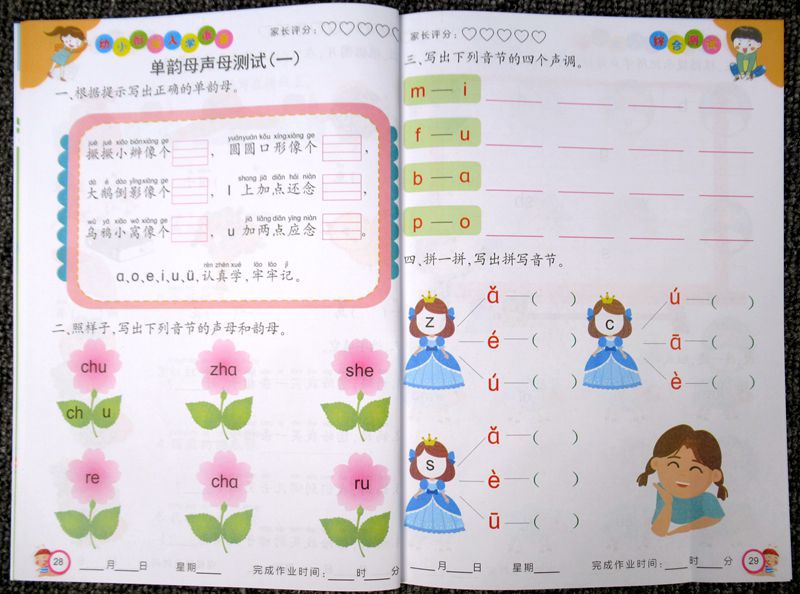 幼小衔接入学准备
家长评分:♡♡♡♡♡
单韵母声母测试(一)
一、根据提示写出正确的单韵母。
juē juē xiǎo biàn xiàng ge
撅撅小辫像个 ,
yuán yuán kǒu xíng xiàng ge
圆圆口形像个 ,
dà é dào yǐng xiàng ge
大鹅倒影像个 ,
shang jiā diǎn hái niàn
l 上加点还念 ,
wū yā xiǎo wō xiàng ge
乌鸦小窝像个 ,
jiā liǎng diǎn yīng niàn
u 加两点应念 。
rèn zhēn xué láo láo jì
ɑ,o,e,i,u,ü,认真学,牢牢记。
二、照样子,写出下列音节的声母和韵母。
chu zhɑ she
ch u
re chɑ ru
28 月 日 星期 完成作业时间: 时 分
家长评分:♡♡♡♡♡
综合测试
三、写出下列音节的四个声调。
m — i
f — u
b — ɑ
p — o
四、拼一拼,写出拼写音节。
z ǎ ( ) é ( ) ú ( )
c ú ( ) ā ( ) è ( )
s ǎ ( ) è ( ) ū ( )
月 日 星期 完成作业时间: 时 分 29